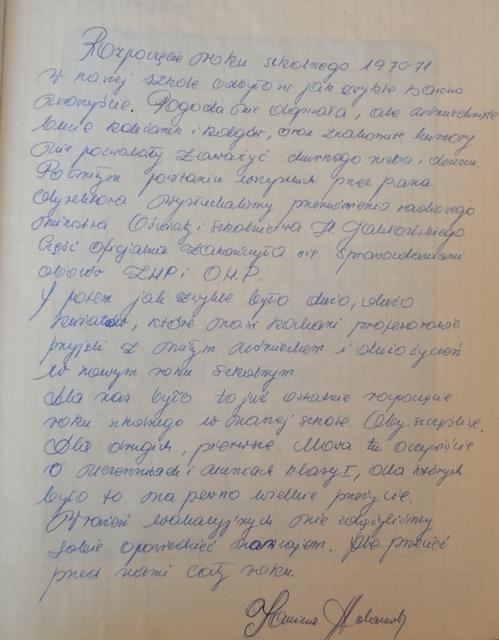 Rozpoczęcie roku szkolnego 1970-71
w naszej szkole odbyło się jak zwykle bardzo
uroczyście. Pogoda nie dopisała, ale uśmiechnięte
buzie koleżanek i kolegów, oraz znakomite humory
nie pozwalały zauważyć chmurnego nieba i deszczu.
Po miłym powitaniu wszystkich przez pana
dyrektora wysłuchaliśmy przemówienia radiowego
ministra Oświaty i szkolnictwa H. Jabłońskiego.
Część oficjalna zakończyła się sprawozdaniami
obozów ZHP i OHP.
A potem jak zwykle było dużo, dużo
kwiatów, które nasi kochani profesorowie
przyjęli z miłym uśmiechem i dużo życzeń
w nowym roku szkolnym.
Dla nas było to już ostatnie rozpoczęcie
roku szkolnego w naszej szkole. Oby szczęśliwe.
Dla drugich, pierwsze. Mowa tu oczywiście
o uczennicach i uczniach klasy I, dla których
było to na pewno wielkie przeżycie.
Wrażeń wakacyjnych nie zdążyliśmy
sobie opowiedzieć nawzajem. Ale przecież
przed nami cały rok.